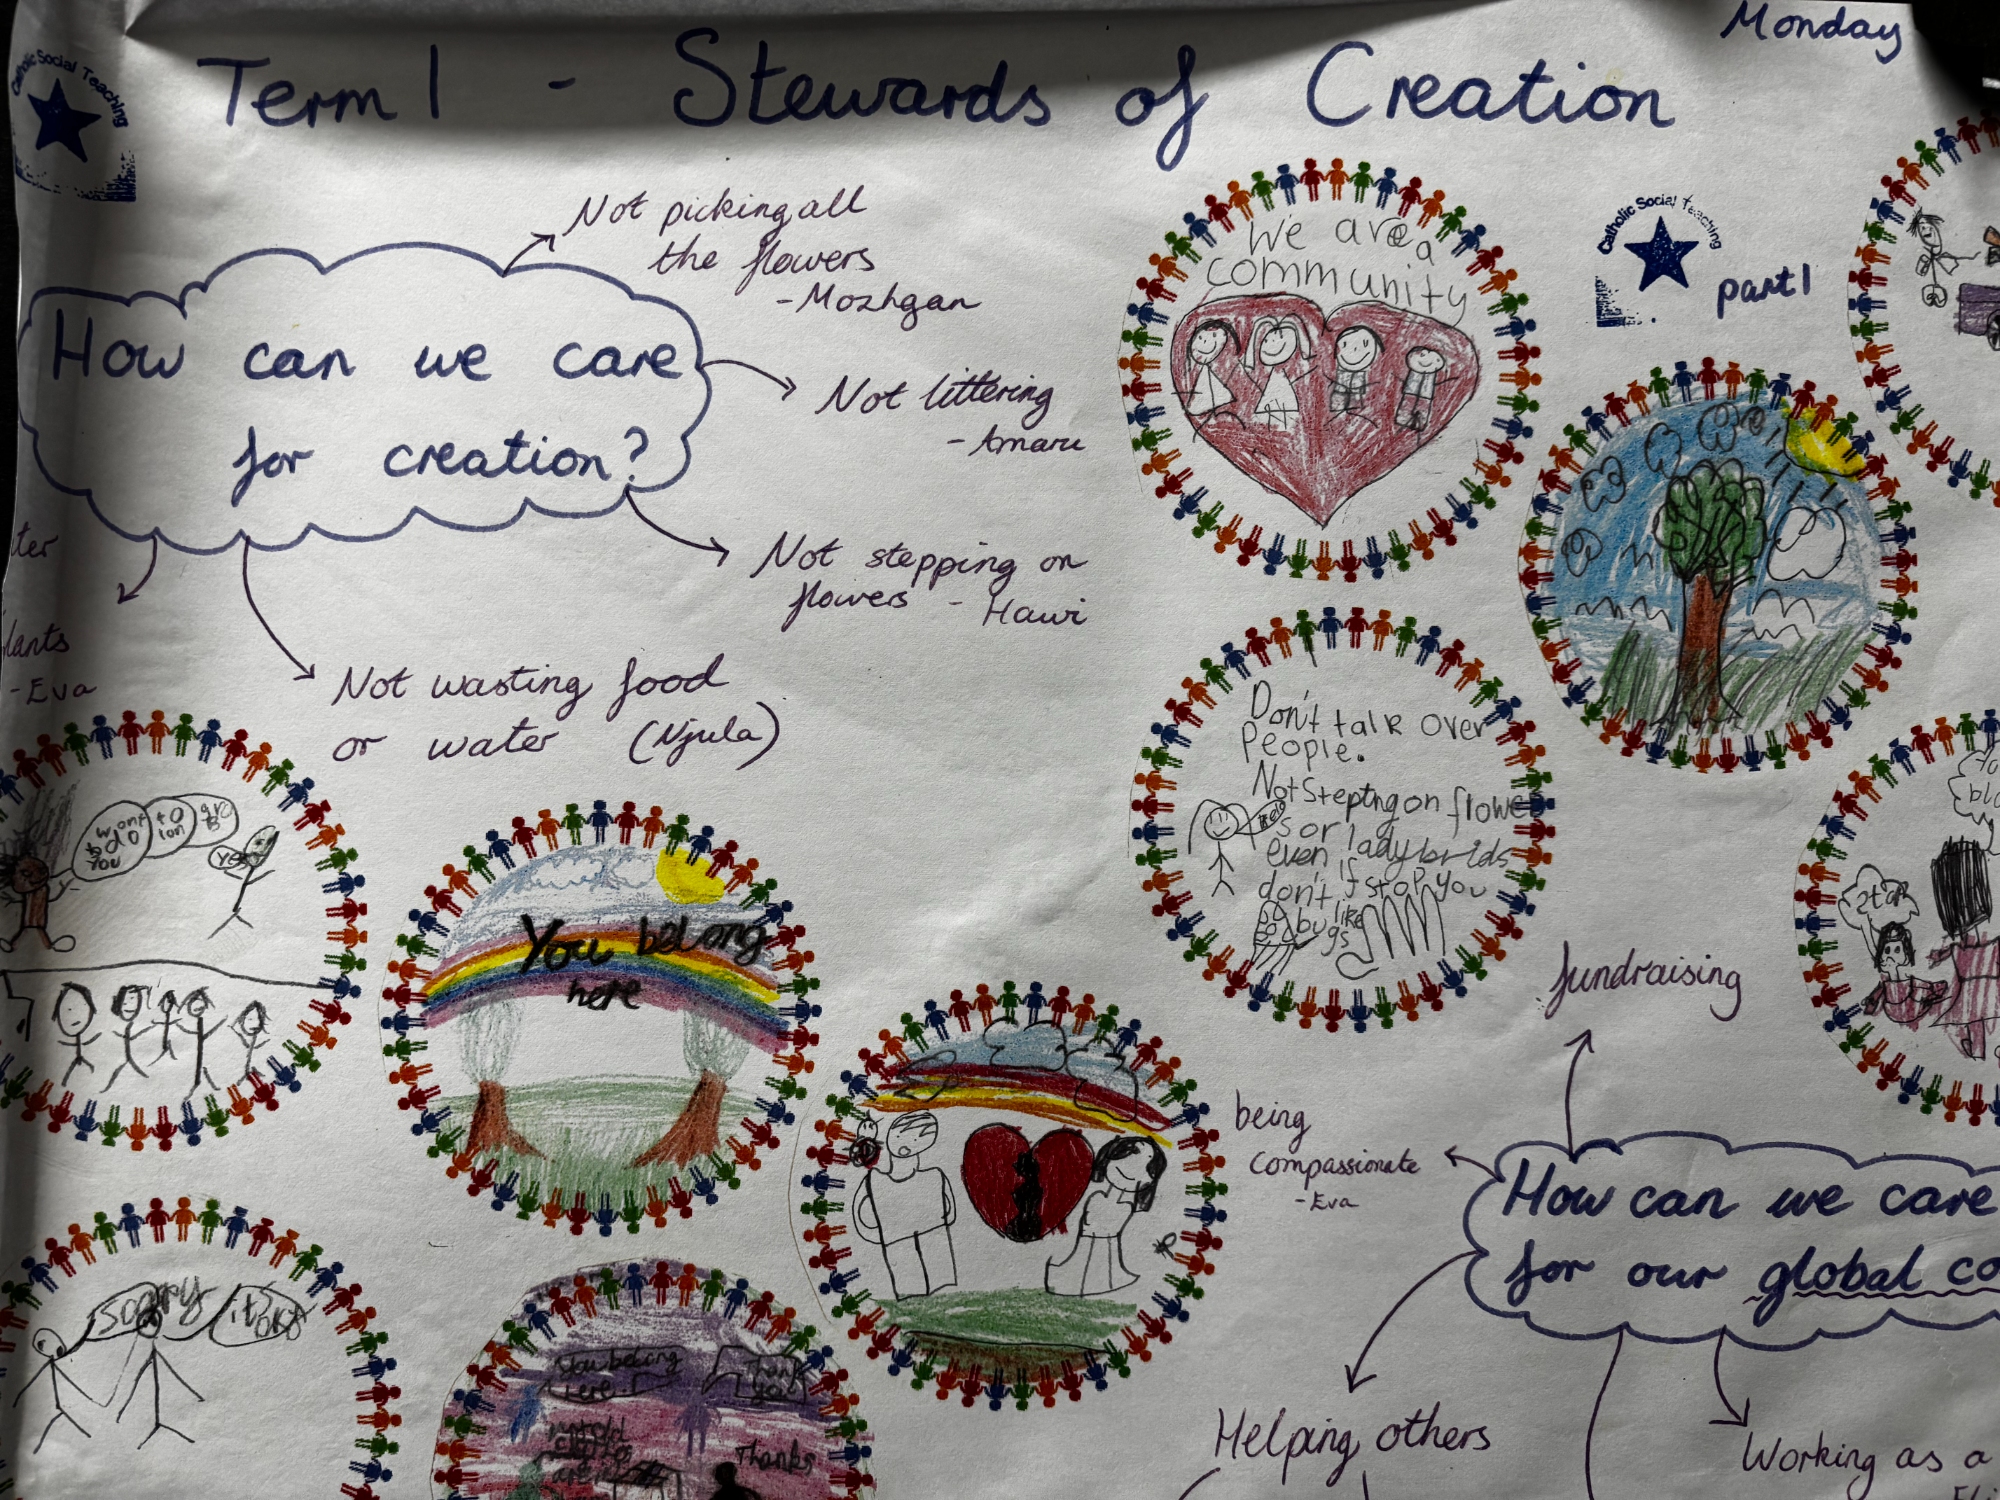 Monday
Term 1 - Stewards of Creation
Catholic Social Teaching
Not picking all
the flowers
- Mozhgan
How can we care
for creation?
Not littering
- Amaru
Not stepping on
flowers - Hawi
Not wasting food
or water (Njula)
lants
- Eva
We are a
community
Catholic Social Teaching
part 1
Don't talk over
People.
Not Stepting on flowe
s or ladybrids
even if
don't
stop you
like
bugs
want to
you
yes
You belong
here
sorry
it okay
You belong
here
Thank
you
Thanks
fundraising
being
compassionate
- Eva
How can we care
for our global co
Helping others
Working as a